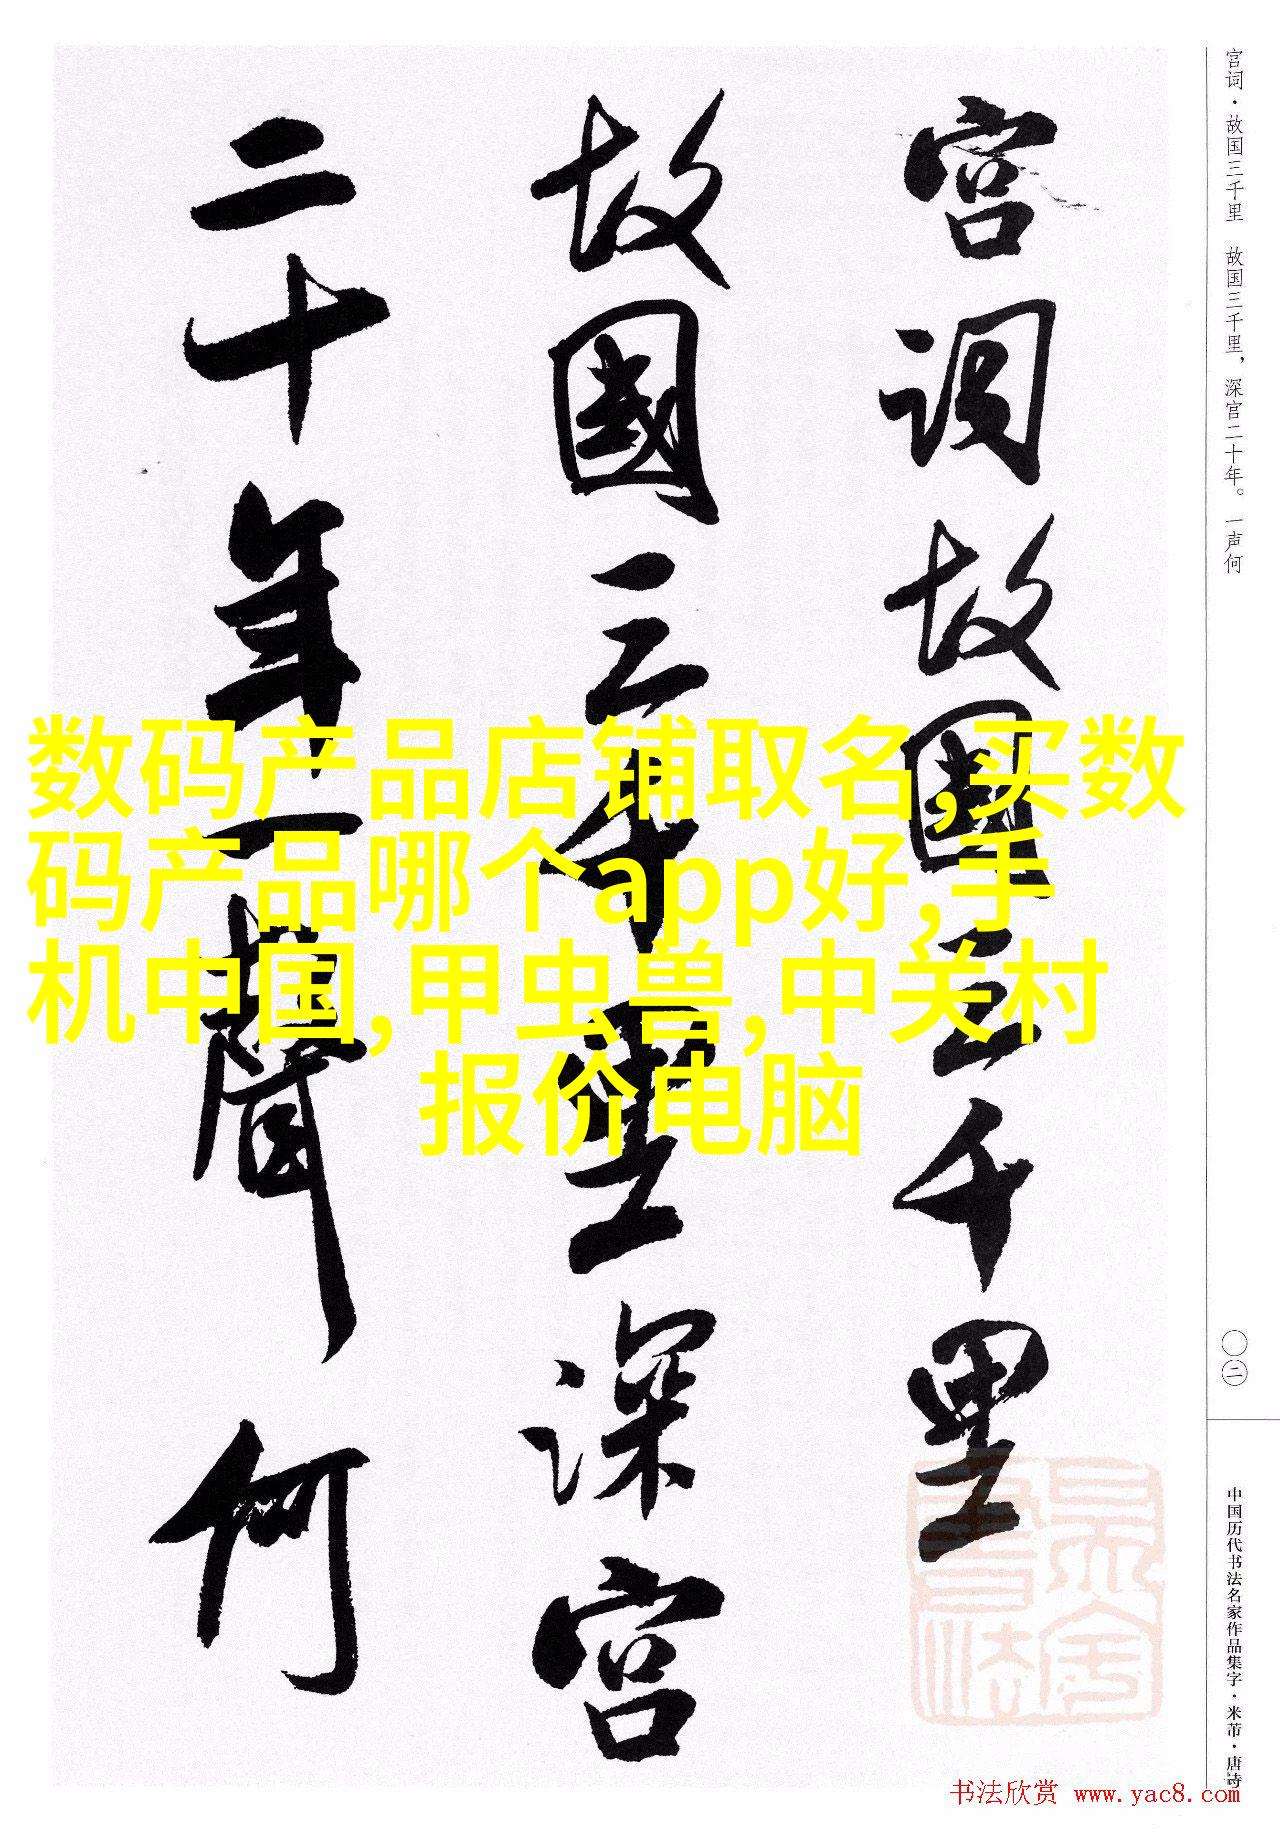 宫词·故国三千里 故国三千里，深宫二十年。一声何
宫词故國三千里
故國三千里深宫
二十年一聲何
数码产品店铺取名,买数
码产品哪个app好,手
机中国,甲虫兽,中关村
报价电脑
〇二
中国历代书法名家作品集字·米芾·唐诗
书法欣赏 www.yac8.com